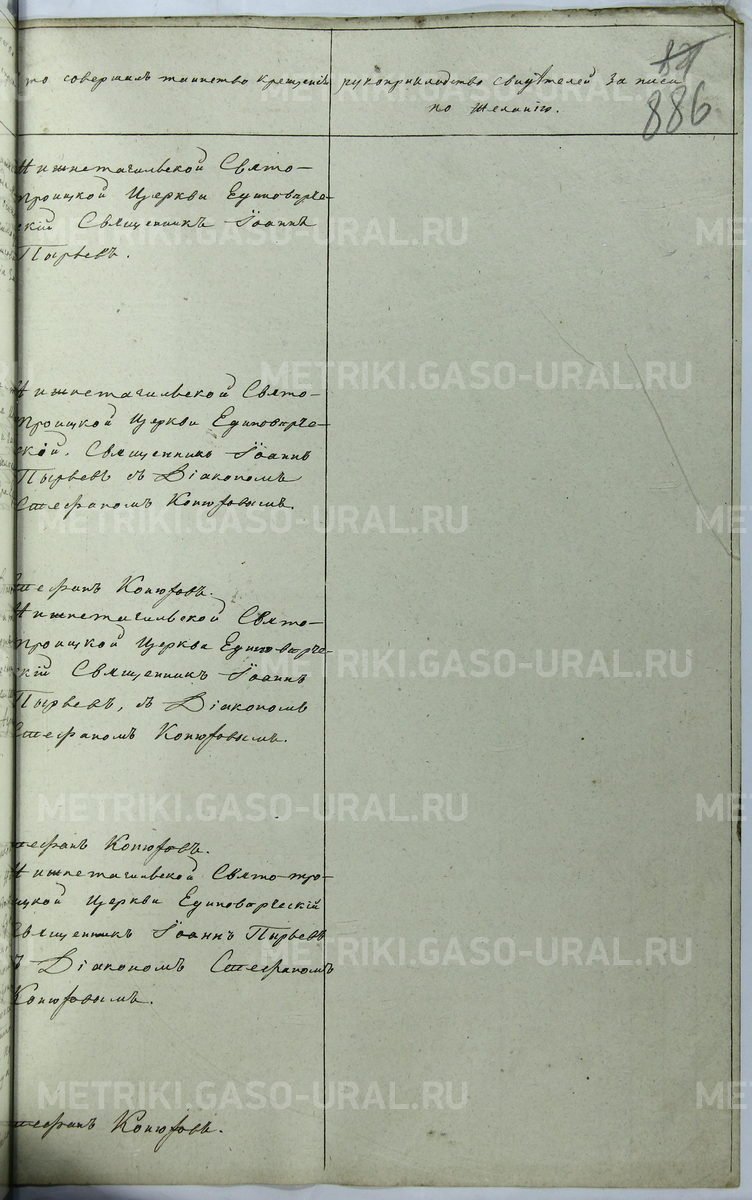 то совершилъ таинство крещенія
рукоприкладство свидѣтелей записи
по желанію.
886
Нижнетагильской Свято-
троицкой Церкви Единовѣрче-
скій Священникъ Іоаннъ
Пырьевъ.
Нижнетагильской Свято-
троицкой Церкви Единовѣрче-
скій. Священникъ Іоаннъ
Пырьевъ съ Діакономъ
Стефаномъ Конюховымъ.
Стефанъ Конюховъ.
Нижнетагильской Свято-
троицкой Церкви Единовѣрче-
скій Священникъ Іоаннъ
Пырьевъ, съ Діакономъ
Стефаномъ Конюховымъ.
стефанъ Конюховъ.
Нижнетагильской Свято-тро-
ицкой Церкви Единовѣрческій
Священникъ Іоаннъ Пырьевъ
съ Діакономъ Стефаномъ
Конюховымъ.
стефанъ Конюховъ.
METRIKI.GASO-URAL.RU